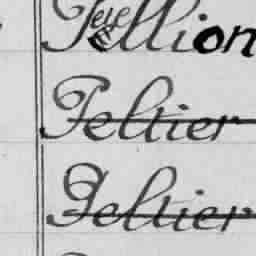 Pellion
Peltier
Peltier